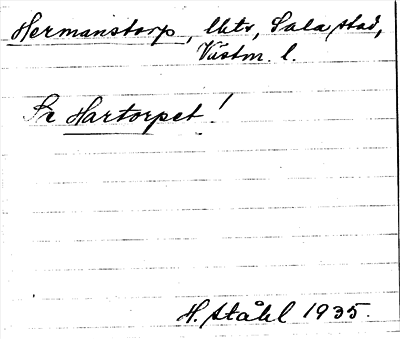 Hermanstorp, lht, Sala stad,
Västm. l.
Se Hartorpet!
H. Ståhl 1935.